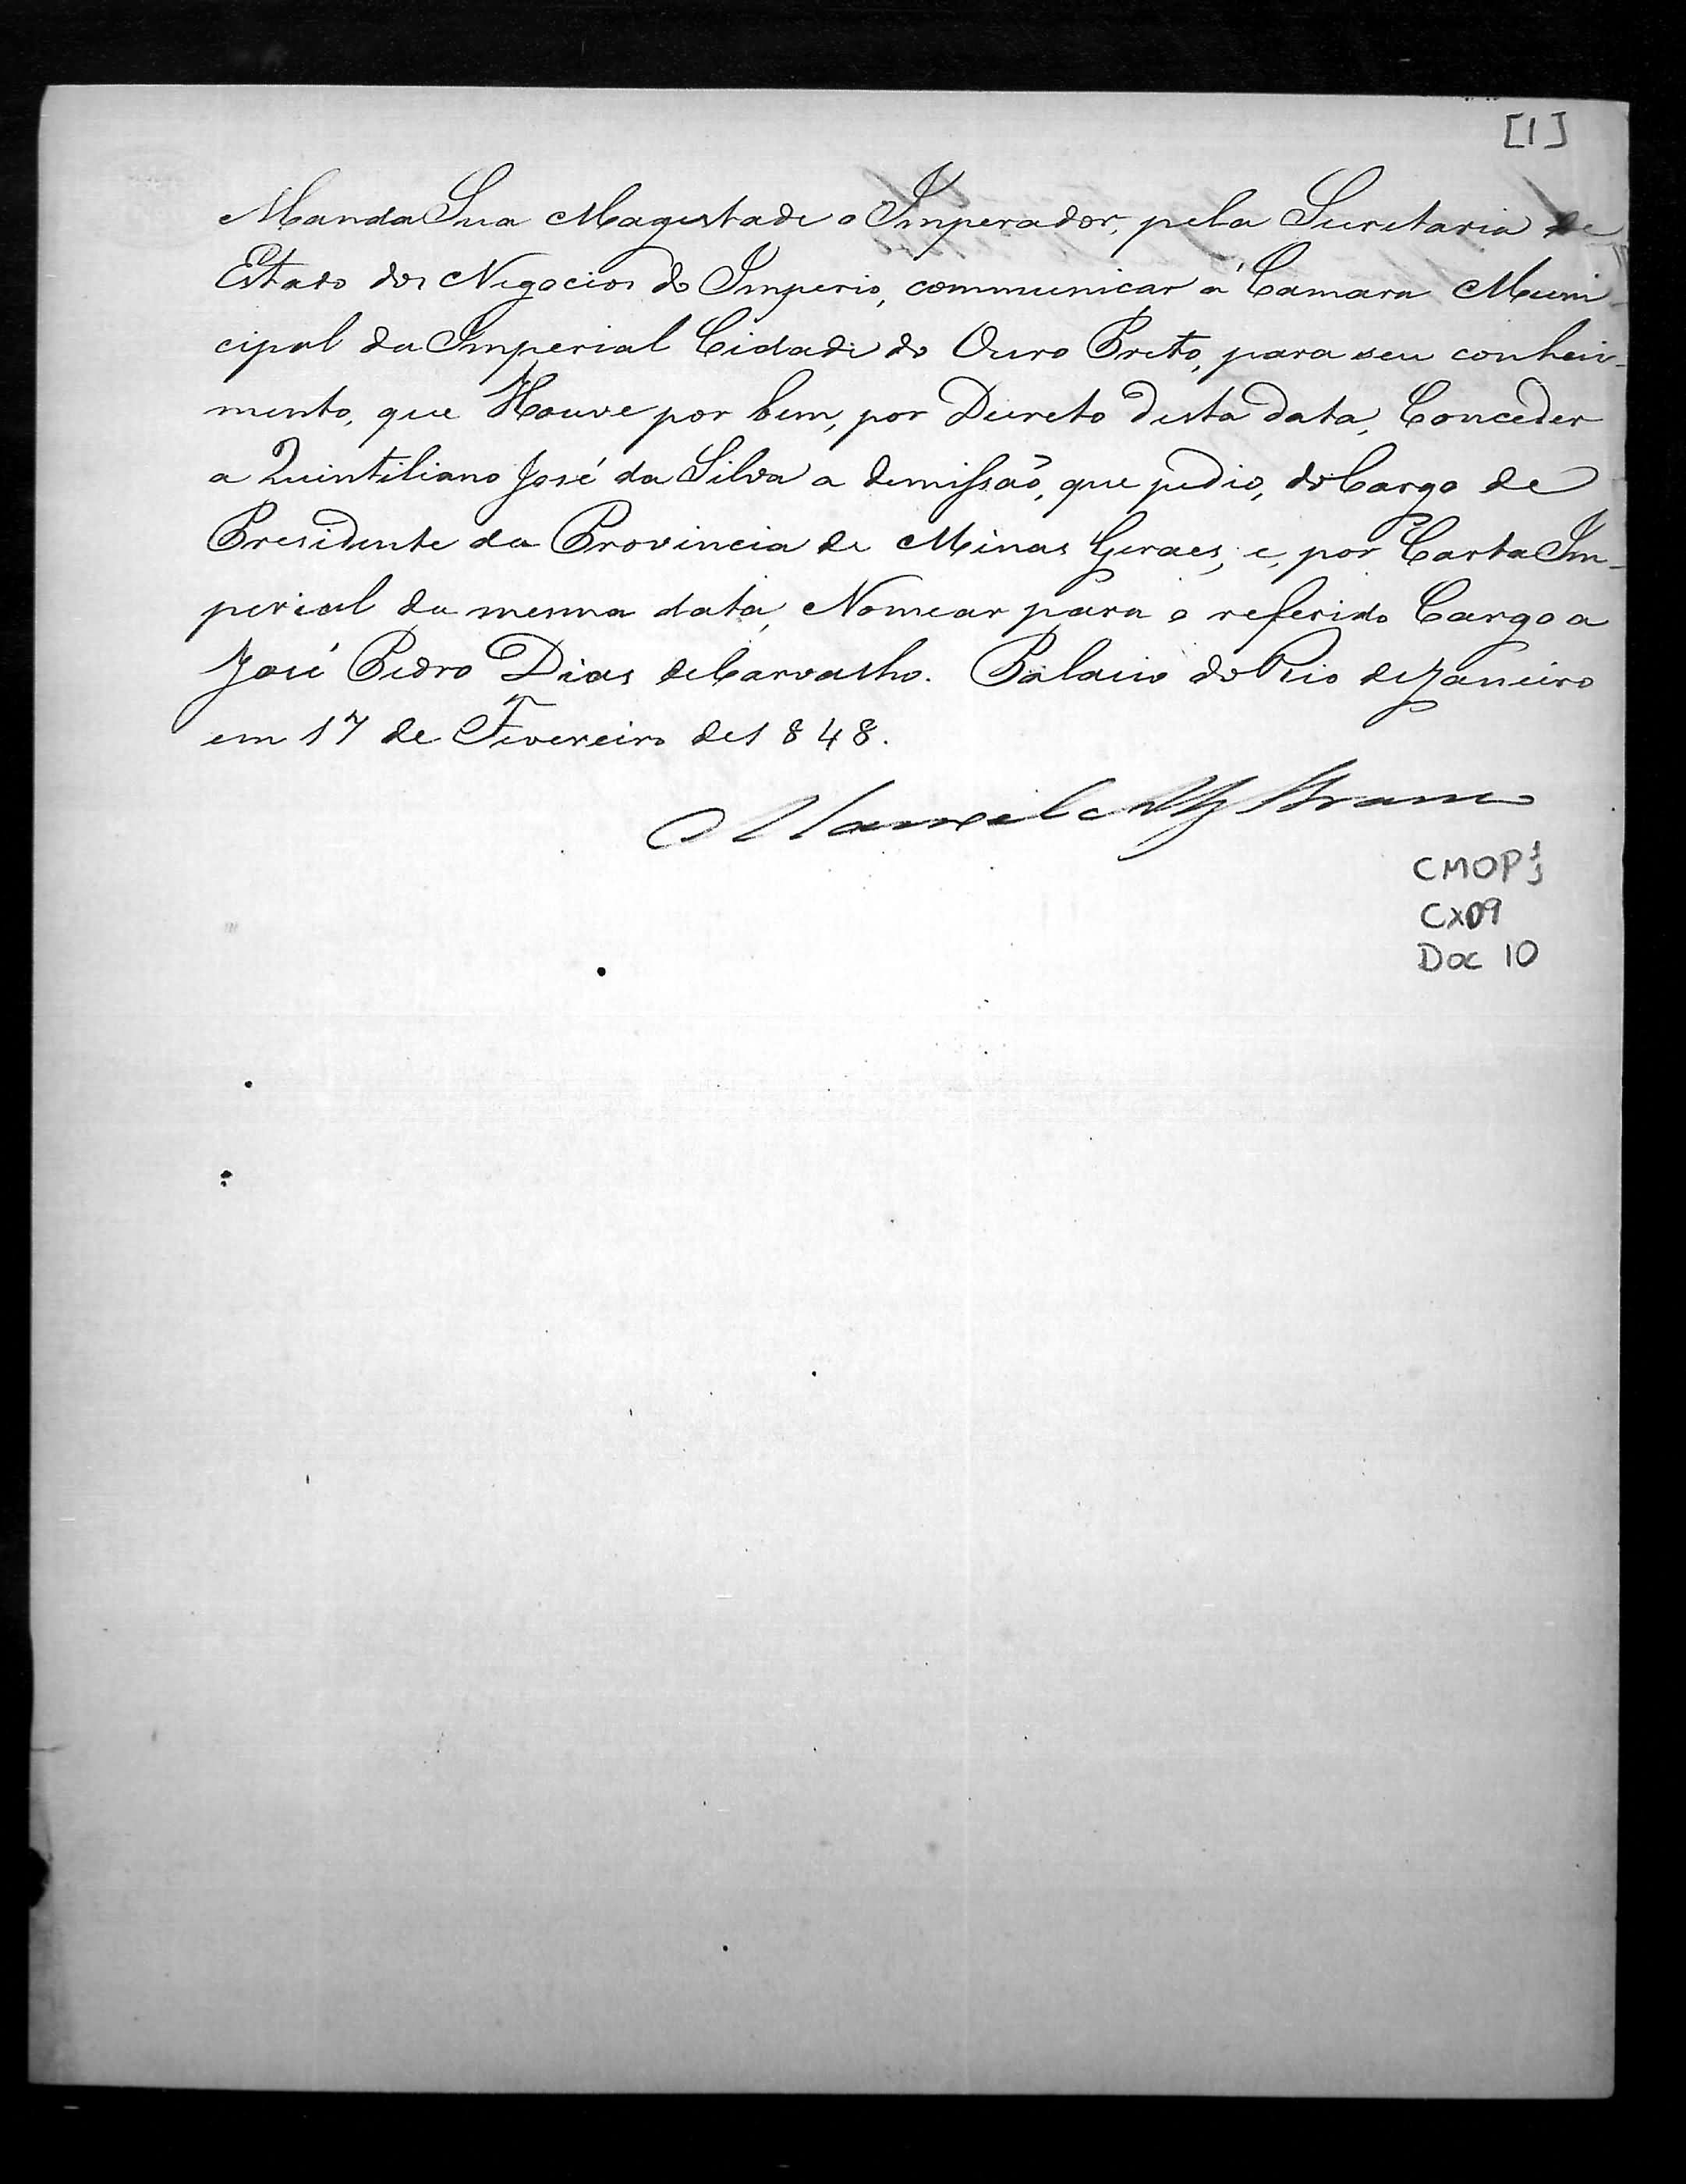 [1]
Manda Sua Magestade o Imperador, pela Secretaria de
Estado dos Negocios do Imperio, communicar á Camara Muni-
cipal da Imperial Cidade do Ouro Preto, para seu conheci-
mento, que Houve por bem, por Decreto desta data, Conceder
a Quintiliano José da Silva a demissão, que pedio, do Cargo de
Presidente da Provincia de Minas Geraes, e, por Carta Im-
perial da mesma data, Nomear para o referido Cargo a
José Pedro Dias de Carvalho. Palacio do Rio de Janeiro
em 17 de Fevereiro de 1848.
Manoel Alz Branco
CMOP
Cx09
Doc 10